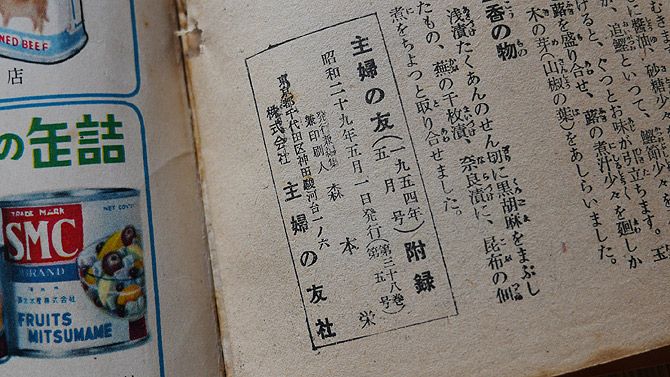 にさま
に醤油、砂糖少
が、追鰹といつて、鰹節少々を
けると、ぐっとお味が引立ちます。玉
蕗を盛り合せ、蕗の煮汁少々を廻しか
木の芽（山椒の葉）をあしらいました。
香の物
浅漬たくあんのせん切に黒胡麻をまぶし
たもの、蕪の千枚漬、奈良漬に、昆布の佃
煮をちょっと取り合せました。
主婦の友（一九五四年五月号）附録
昭和二十九年五月一日発行（第三十八巻第五号）
発行兼編集兼印刷人 森本栄
東京都千代田区神田駿河台一ノ六
株式会社 主婦の友社
NED BEEF
店
の缶詰
TRADE MARK
SMC
BRAND
FRUITS
MITSUMAME